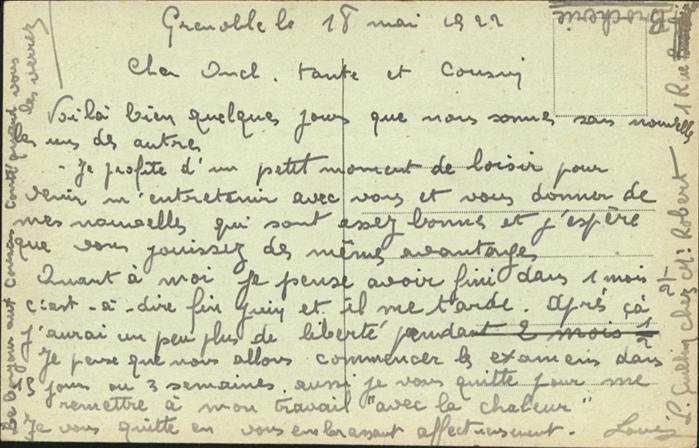 Grenoble le 18 mai 1922
Cher Oncl. tante et Cousin
Voilà bien quelques jours que nous sommes sans nouvelles
les uns des autres
- Je profite d'un petit moment de loisir pour
venir m'entretenir avec vous et vous donner de
mes nouvelles qui sont assez bonnes et j'espère
que vous jouissez des mêmes avantages
Quant à moi je pense avoir fini dans 1 mois
c'est-à-dire fin juin et il me tarde. Après çà
j'aurai un peu plus de liberté pendant 2 mois 1/2
Je pense que nous allons commencer les examens dans
15 jours ou 3 semaines. aussi je vous quitte pour me
remettre à mon travail "avec la chaleur"
Je vous quitte en vous embrassant affectueusement. Louis
Bonjours aux Cousins quand vous
les verrez
chez Mr Robert 1 Rue
Brocherie